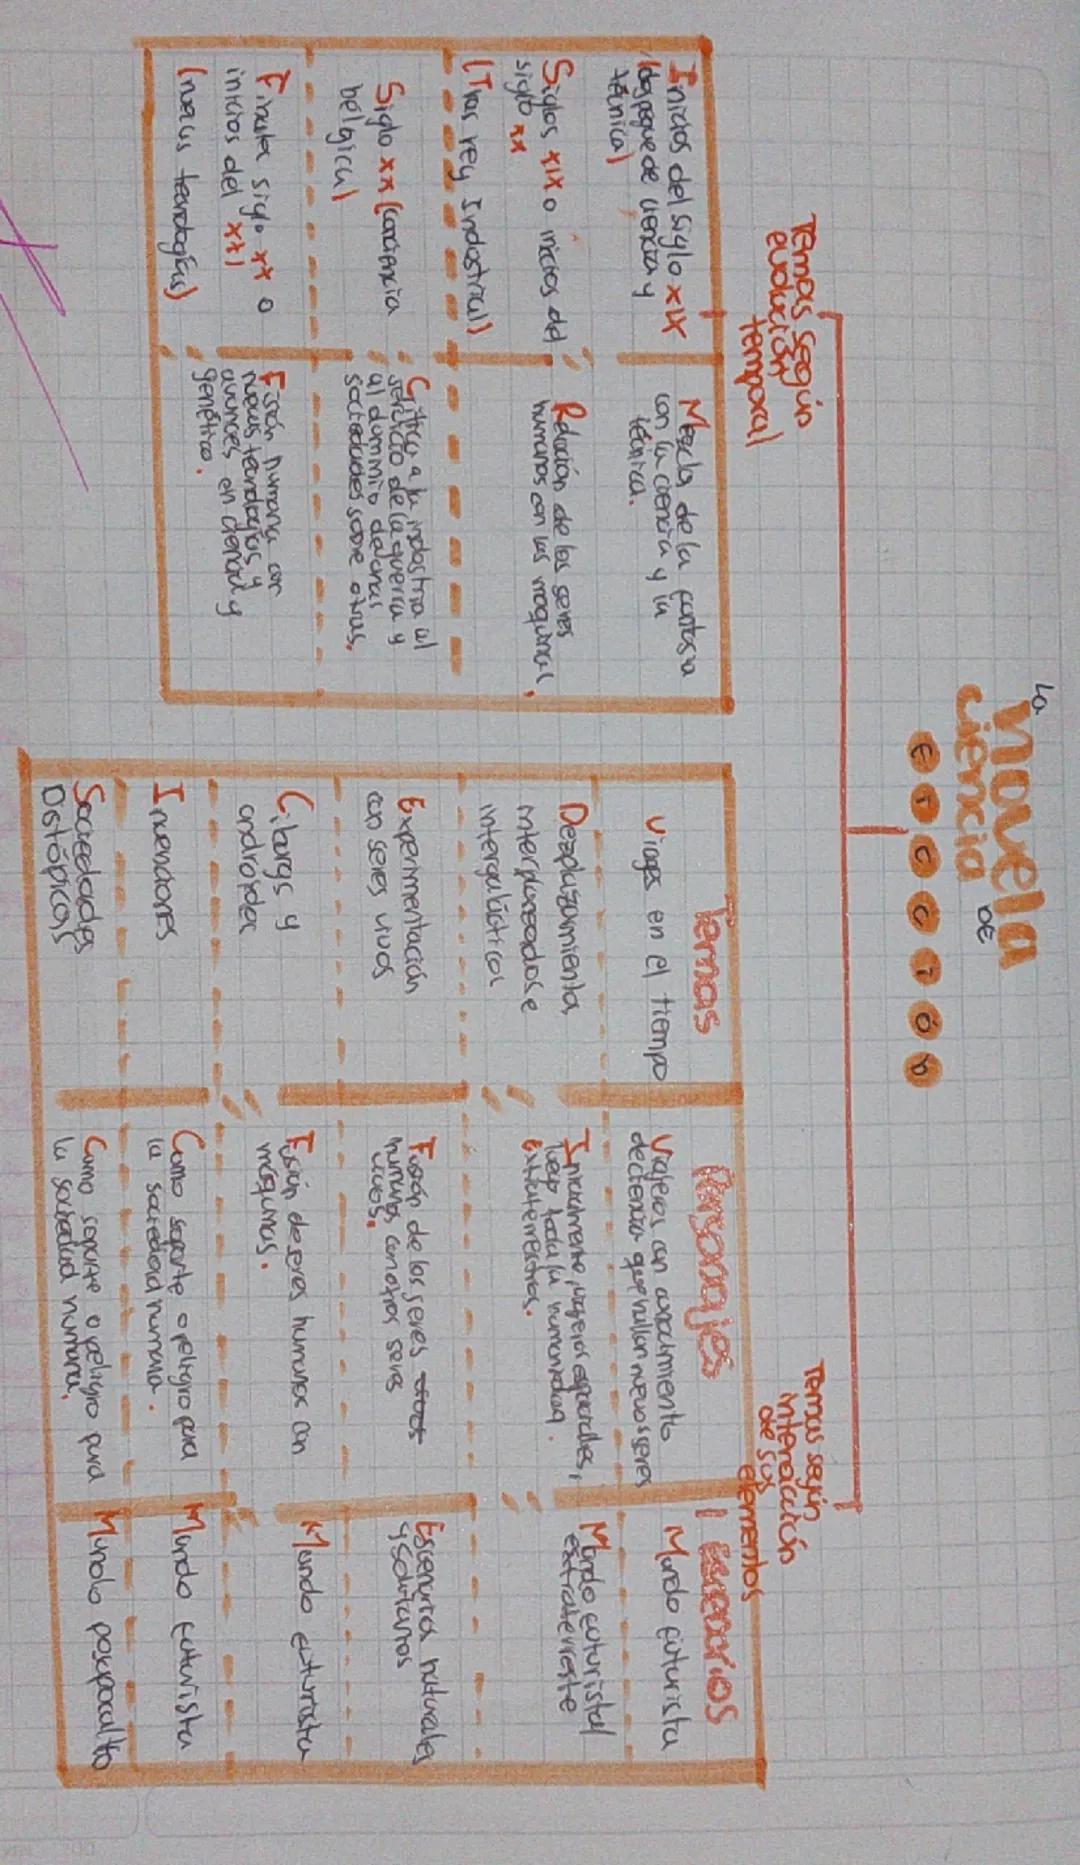 La
novela
DE
ciencia
FICCCIÓN
Temas según
evolución
temporal
Inicios del siglo XIX
(despegue de ciencia y
técnica)
Mezcla de la fantasia
con la ciencia y la
técnica.
Siglos XIX o inicios del
siglo XX
(Tras rev Industrial)
Relación de los seres
humanos con las maquinas.
Siglo XX (conciencia
bélgica)
Crítica a la industria al
servicio de la guerra y
al dominio de unas
sociedades sobre otras.
Finales siglo XX o
inicios del XXI
(nuevas tecnologías)
Fsión humana con
nuevas tecnologías y
avances en ciencia y
genética.
Temas según
interacción
de sus
elementos
Temas
Personajes
Escenarios
Viages en el tiempo
Viajeros con conocimiento
de ciencia que hallan nuevos seres
Mundo futurista
Desplazamiento
interplaneados e
intergalácticos
Inicialmente, viajeros espaciales,
luego toda la humanidad y
Extraterrestres.
Mundo futurista/
extraterrestre
Experimentación
con seres vivos
Fusión de los seres
humanos con otros seres
vivos.
Escenarios naturales
y solitarios
Ciborgs y
androides
Fusión de seres humanos con
máquinas.
Mundo futurista
Invenciones
Como soporte o peligro para
la sociedad humana.
Mundo futurista
Sociedades
Distópicas
Como soporte o peligro para
la sociedad humana.
Mundo posapocalíto